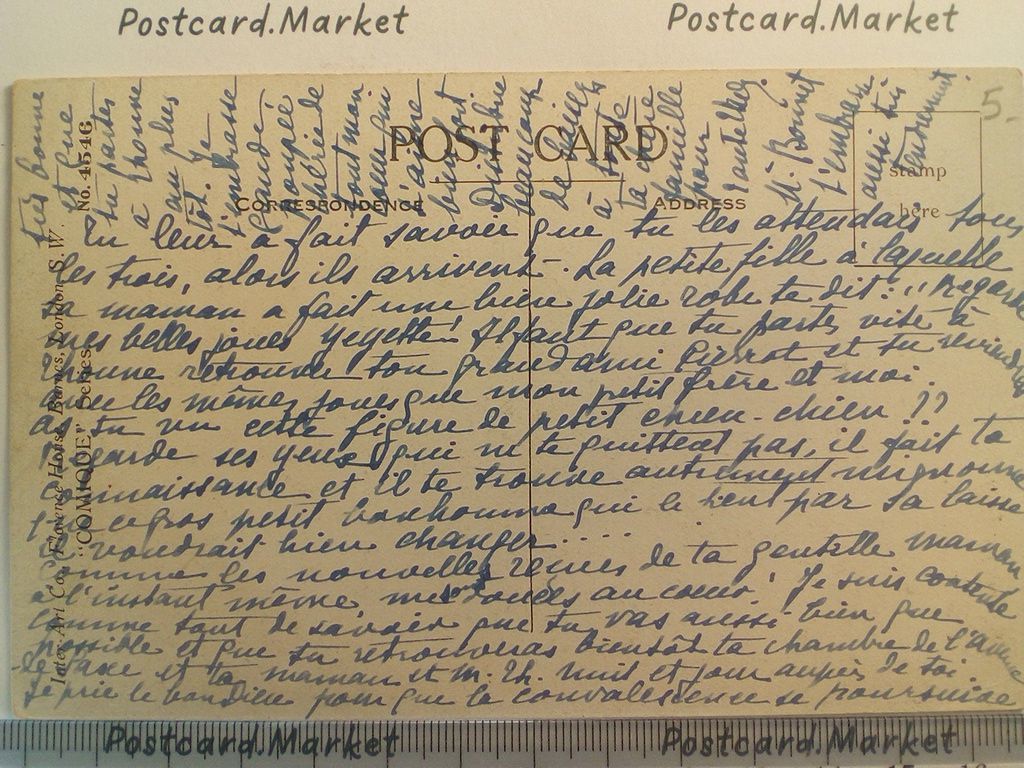 Postcard.Market Postcard.Market
POST CARD
CORRESPONDENCE ADDRESS
stamp
here
5.
No. 4546
"COMIQUE" Series
Inter-Art Co., Florence House, Barnes, London S.W.
Tu leur a fait savoir que tu les attendais tous
les trois, alors ils arrivent. La petite fille à laquelle
ta maman a fait une bien jolie robe te dit: "Regarde
mes belles joues Yeyette! Il faut que tu partes vite à
retrouver ton grand ami Pierrot et tu
avec les mêmes joues que mon petit frère et moi.
As-tu vu cette figure de petit chien-chien ??
Regarde ses yeux qui ne te quittent pas, il fait ta
connaissance et il te trouve autrement mignonne
que ce gros petit bonhomme qui le tient par sa laisse
il voudrait bien changer....
Comme les nouvelles reçues de ta gentille maman
à l'instant même me douces au coeur! Je suis contente
comme tout de savoir que tu vas aussi bien que
possible et que tu retrouveras bientôt ta chambre de l'avenue
de Saxe et ta maman et M. Th. nuit et jour auprès de toi.
Je prie le bon Dieu pour que la convalescence se poursuive
très bonne
et que
tu partes
à
au plus
tôt. Je
t'embrasse
grande
poupée
chérie de
tout mon
coeur qui
t'aime
bien fort.
Distribue
beaucoup
de
à toute
ta chère
famille
pour
M. Bonnet
t'embrasse
aussi très
tendrement.
Postcard.Market Postcard.Market